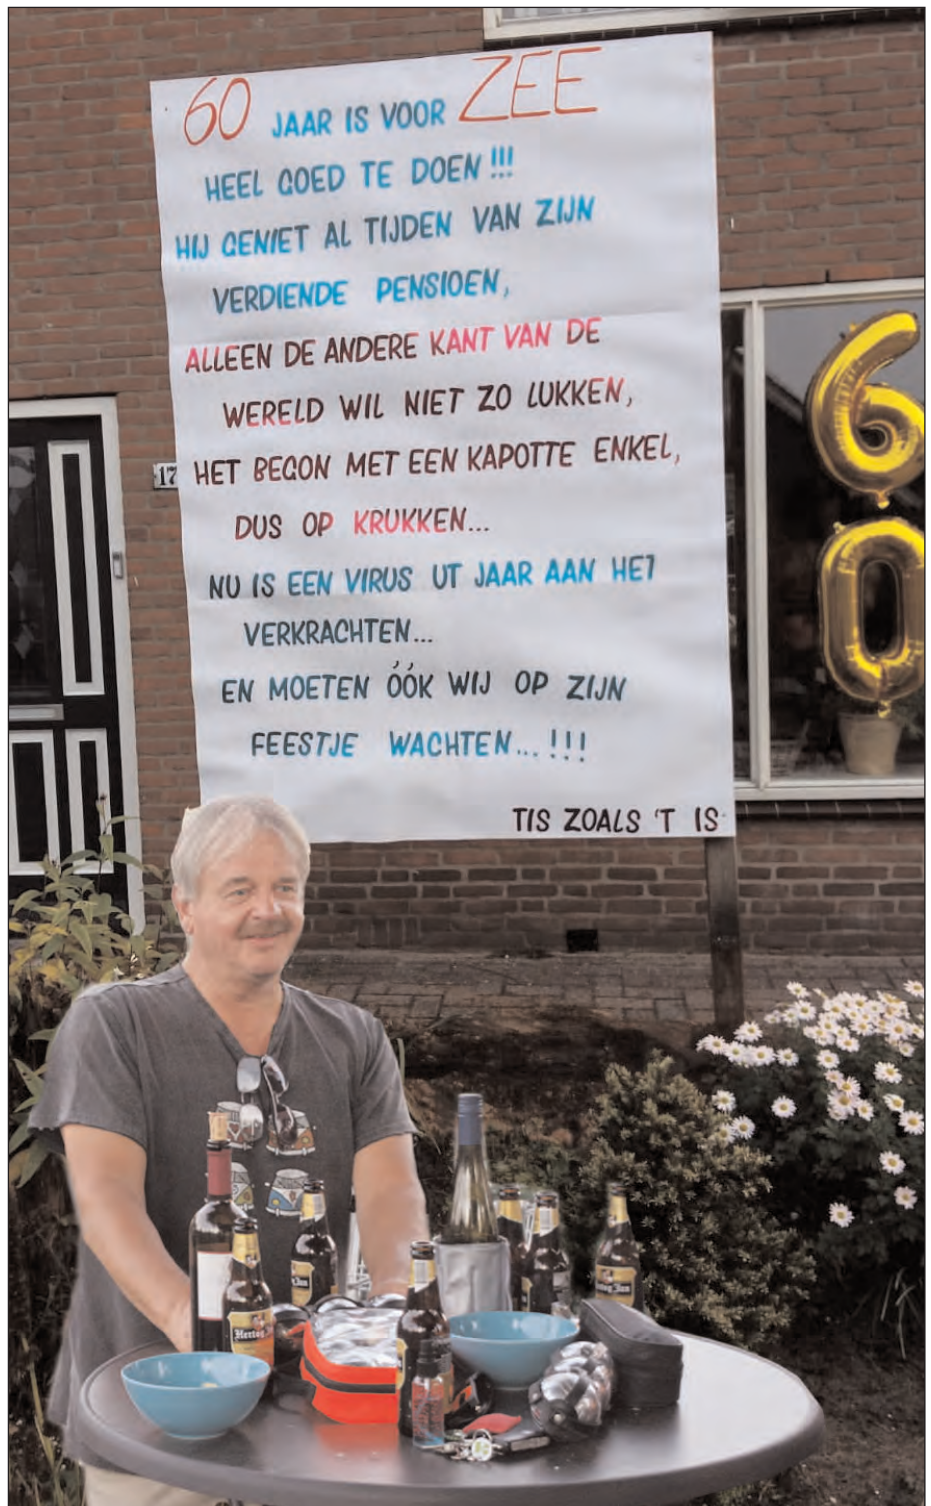 60 JAAR IS VOOR ZEE
HEEL GOED TE DOEN!!!
HIJ GENIET AL TIJDEN VAN ZIJN
VERDIENDE PENSIOEN,
ALLEEN DE ANDERE KANT VAN DE
WERELD WIL NIET ZO LUKKEN,
HET BEGON MET EEN KAPOTTE ENKEL,
DUS OP KRUKKEN...
NU IS EEN VIRUS UT JAAR AAN HET
VERKRACHTEN...
EN MOETEN ÓÓK WIJ OP ZIJN
FEESTJE WACHTEN...!!!
TIS ZOALS 'T IS
60
17
Hertog Jan
Hertog Jan